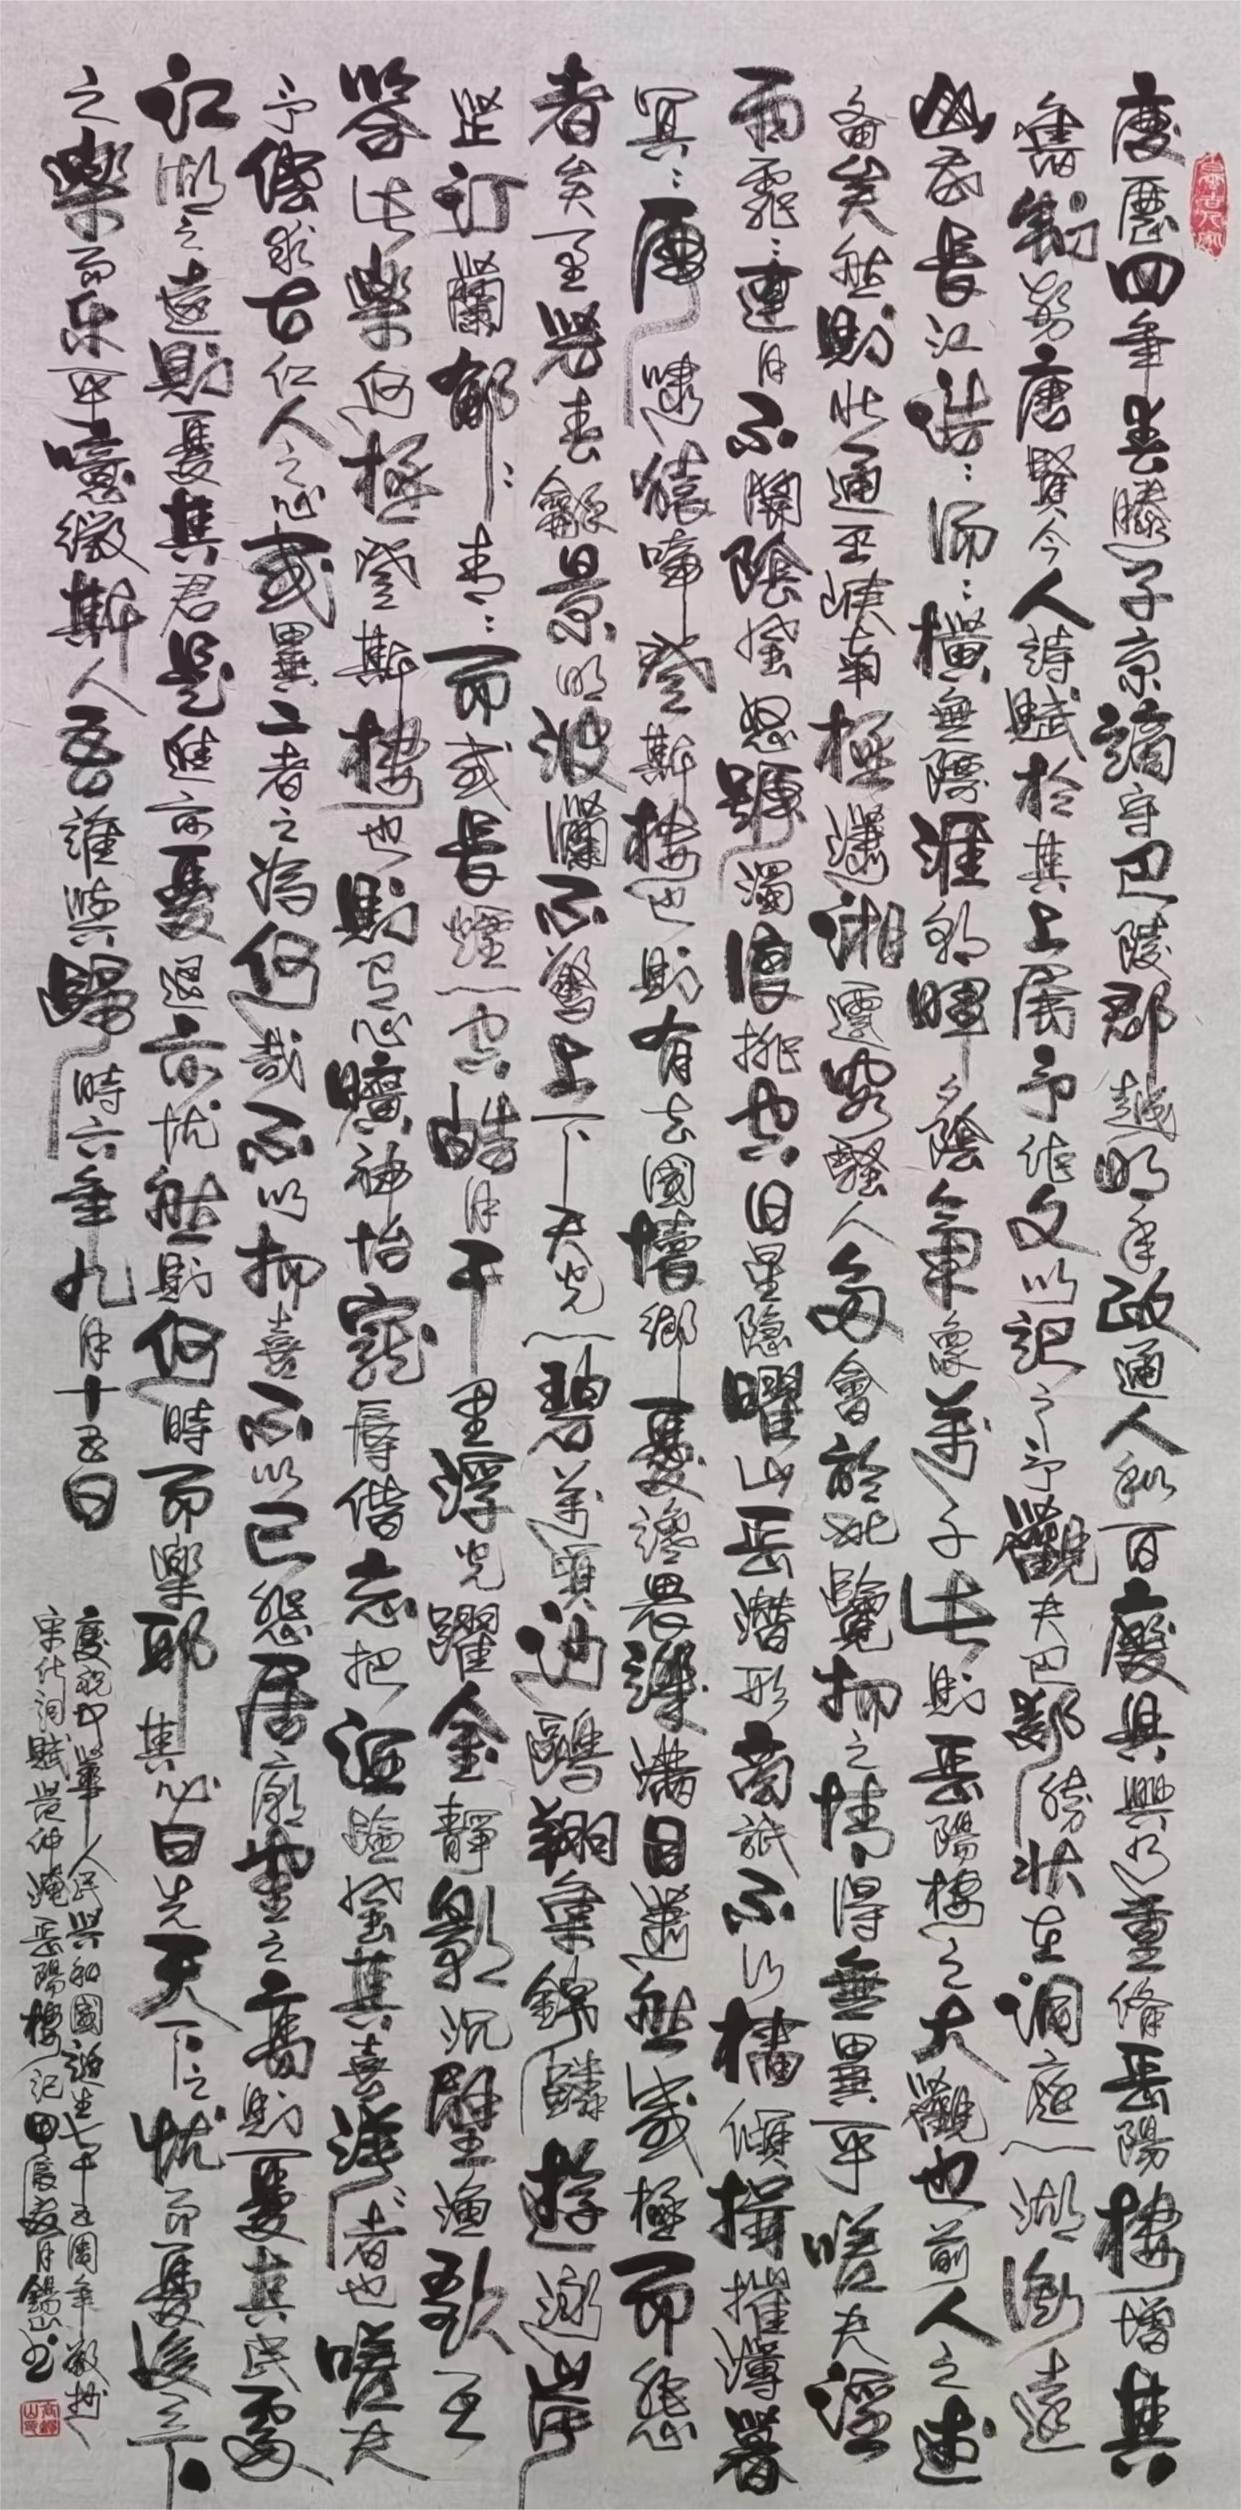 慶曆四年春滕子京謫守巴陵郡越明年政通人和百廢具興乃重脩岳陽樓增其
舊制刻唐賢今人詩賦於其上屬予作文以記之予觀夫巴郡勝狀在洞庭一湖銜遠
山吞長江浩:湯:橫無際涯朝暉夕陰氣象萬千此則岳陽樓之大觀也前人之述
備矣然則北通巫峽南極瀟湘遷客騷人多會於此覽物之情得無異乎嗟夫淫
雨霏:連月不開陰風怒號濁浪排空日星隱曜山岳潛形商旅不行檣傾楫摧薄暮
冥:虎嘯猿啼登斯樓也則有去國懷鄉憂讒畏譏滿目蕭然感極而悲
者矣至若春和景明波瀾不驚上下天光一碧萬頃沙鷗翔集錦鱗游泳岸
芷汀蘭郁:青:而或長煙一空皓月千里浮光躍金靜影沉璧漁歌互
答此樂何極登斯樓也則有心曠神怡寵辱偕忘把酒臨風其喜洋:者也嗟夫
予嘗求古仁人之心或異二者之為何哉不以物喜不以己悲居廟堂之高則憂其民處
江湖之遠則憂其君是進亦憂退亦忧然則何時而樂耶其必曰先天下之忧而憂後天下
之樂而乐乎噫微斯人吾誰與歸時六年九月十五日
慶祝中華人民共和國誕生七十五周年敬抄
宋代詞賦范仲淹岳陽樓記甲辰春月錫山书